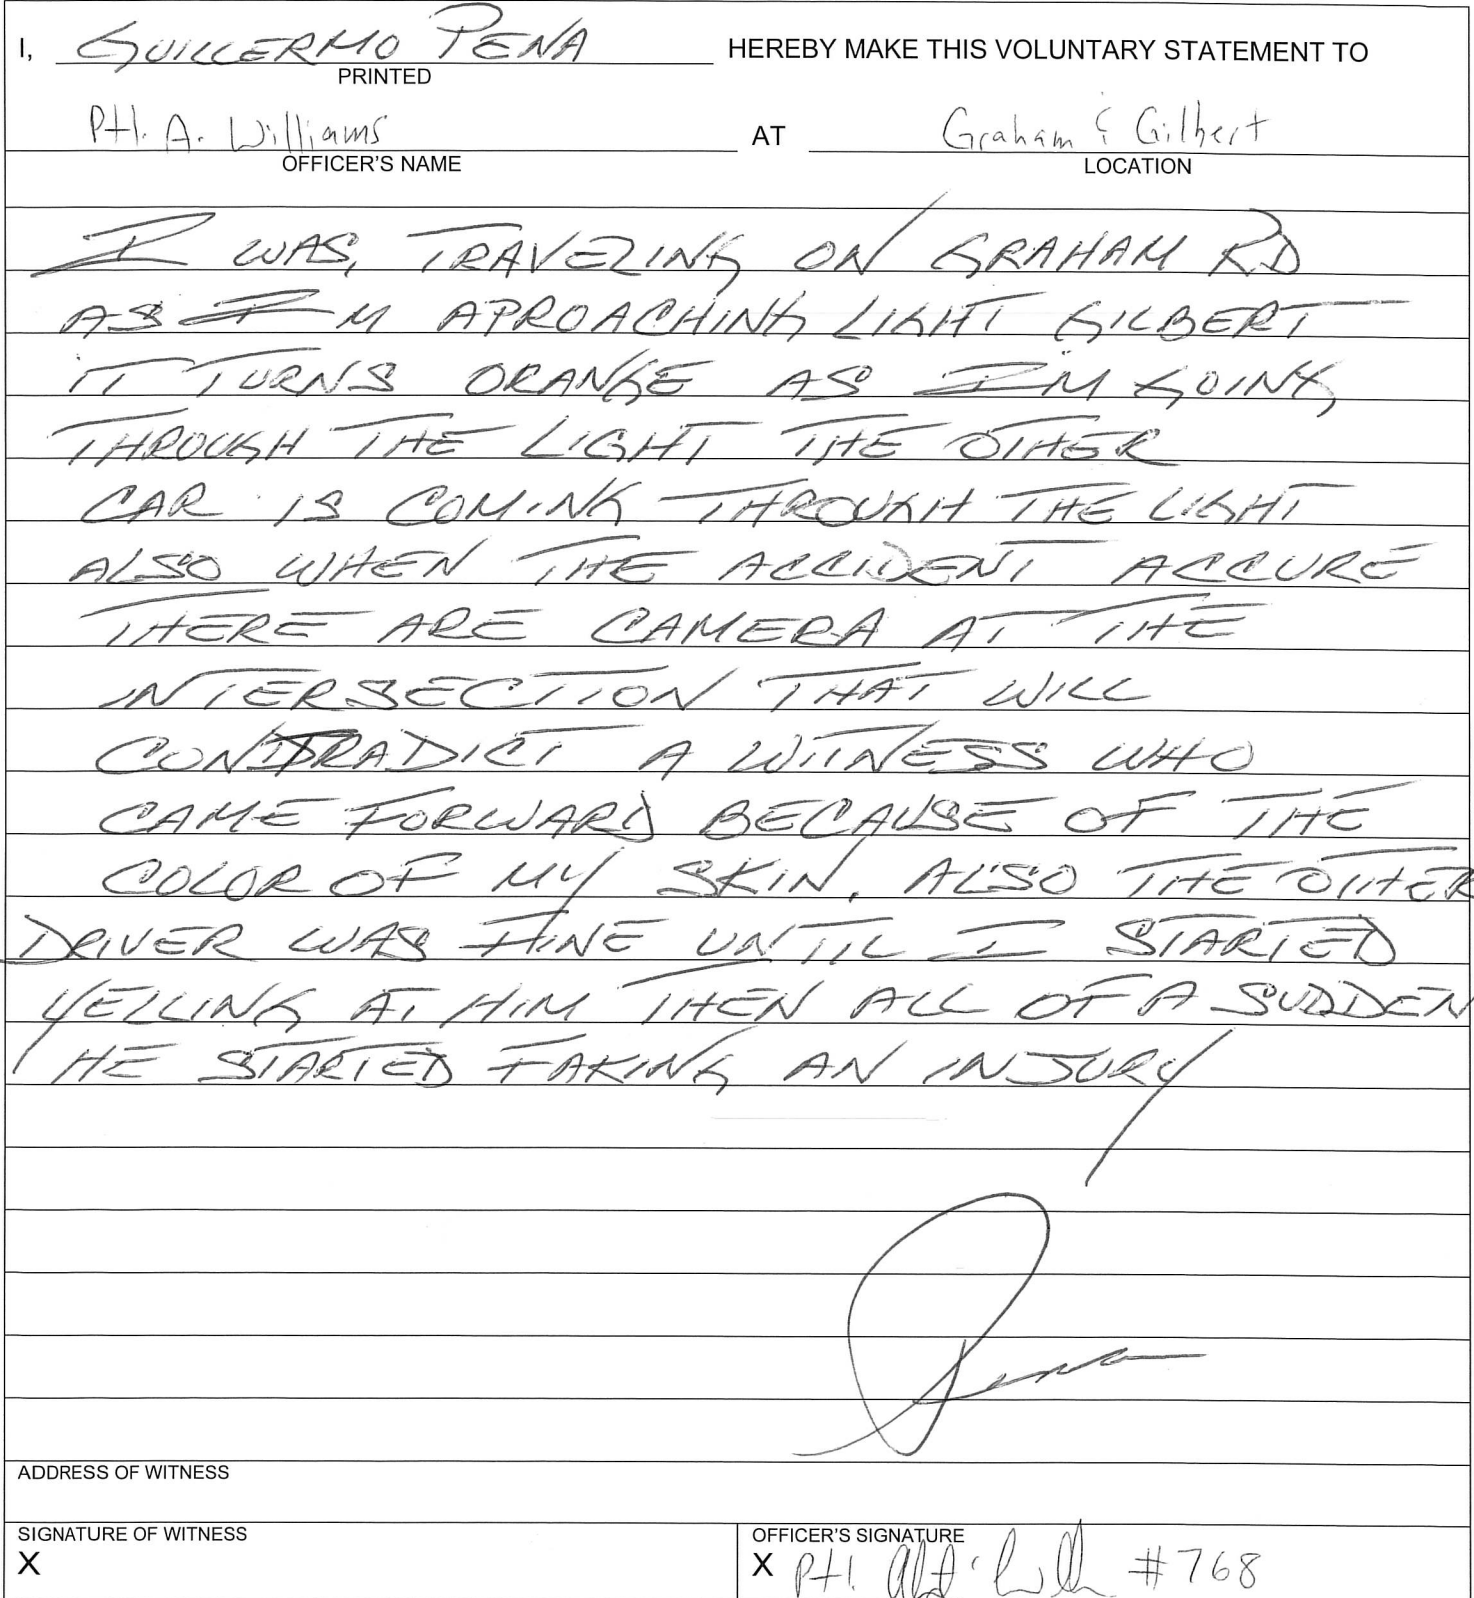 I, GUILLERMO PENA HEREBY MAKE THIS VOLUNTARY STATEMENT TO
PRINTED
Ptl. A. Williams AT Graham & Gilbert
OFFICER'S NAME LOCATION
I WAS, TRAVELING ON GRAHAM RD
AS I'M APROACHING LIGHT GILBERT
IT TURNS ORANGE AS I'M GOING
THROUGH THE LIGHT THE OTHER
CAR IS COMING THROUGH THE LIGHT
ALSO WHEN THE ACCIDENT ACCURE
THERE ARE CAMERA AT THE
INTERSECTION THAT WILL
CONTRADICT A WITNESS WHO
CAME FORWARD BECAUSE OF THE
COLOR OF MY SKIN. ALSO THE OTHER
DRIVER WAS FINE UNTIL I STARTED
YELLING AT HIM THEN ALL OF A SUDDEN
HE STARTED FAKING AN INJURY
Pena
ADDRESS OF WITNESS
SIGNATURE OF WITNESS OFFICER'S SIGNATURE
X X Ptl. #768